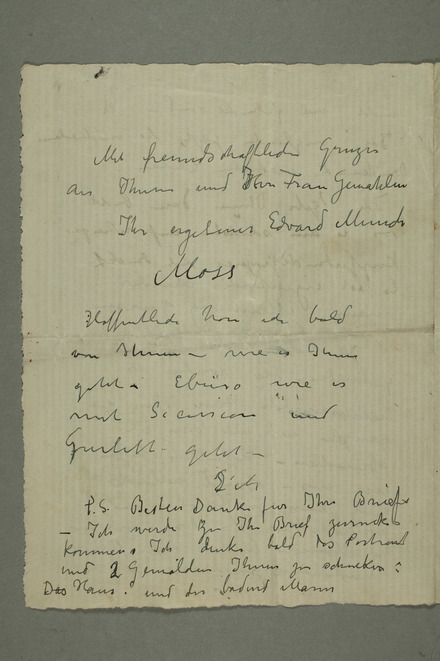 Mit freundschaftlichen Grüzse
an Ihnen und Ihre Frau Gemahlin
Ihr ergebener Edvard Munch
Moss
Hoffentlich höre ich bald
von Ihnen – wie es Ihnen
geht – Ebenso wie es
mit Secession und
Gurlitt geht –
P.S. Besten Dank für Ihr Brief
– Ich werde zu Ihr Brief zurück
kommen Ich denke bald das Portrait
und 2 Gemälden Ihnen zu schicken:
Das Haus und der badend Mann